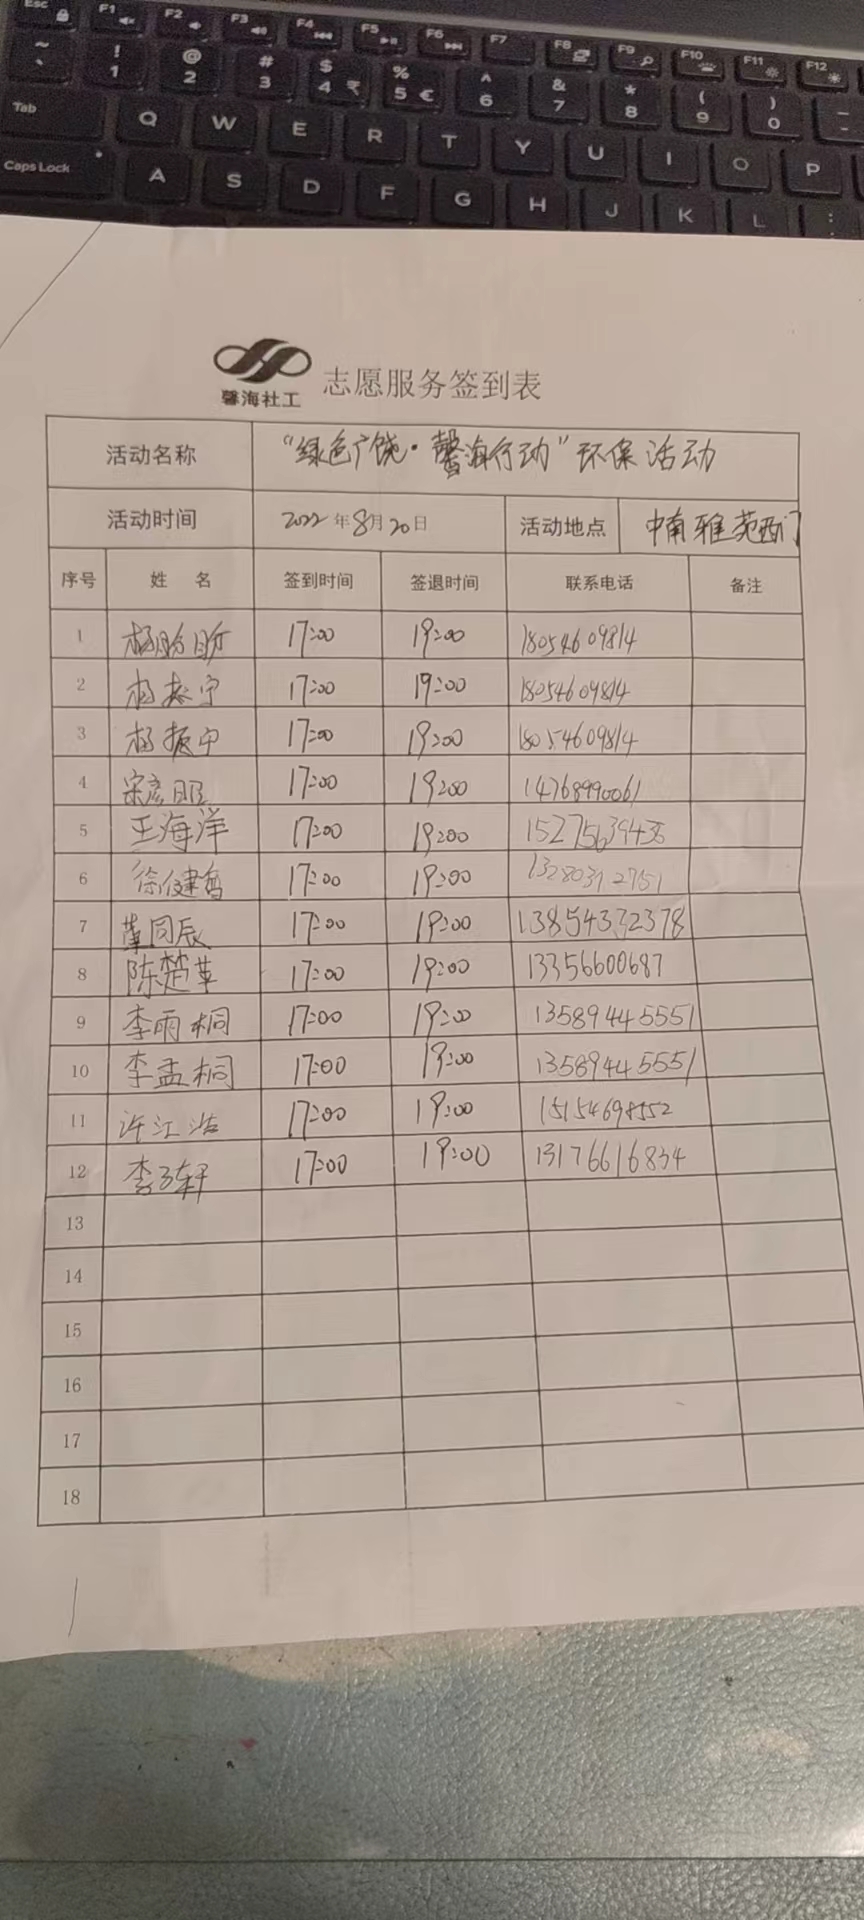 Esc F1 F2 F3 F4 F5 F6 F7 F8 F9 F10 F11 F12
~ ` ! 1 @ 2 # 3 $ 4 ₹ % 5 € ^ 6 & 7 * 8 ( 9 ) 0 -
Tab Q W E R T Y U I O P
Caps Lock A S D F G H J K L :
馨海社工 志愿服务签到表
活动名称 “绿色广饶·馨海行动”环保活动
活动时间 2022年8月20日 活动地点 中南雅苑西门
序号 姓名 签到时间 签退时间 联系电话 备注
1 17:00 19:00 18054609814
2 杨振宁 17:00 19:00 18054609814
3 杨振中 17:00 19:00 18054609814
4 17:00 19:00 14768990061
5 王海洋 17:00 19:00 15275639436
6 17:00 19:00 13280312751
7 董同辰 17:00 19:00 13854332378
8 陈楚苹 17:00 19:00 13356600687
9 李雨桐 17:00 19:00 13589445551
10 李孟桐 17:00 19:00 13589445551
11 许江浩 17:00 19:00 15154698552
12 李子轩 17:00 19:00 13176616834
13
14
15
16
17
18